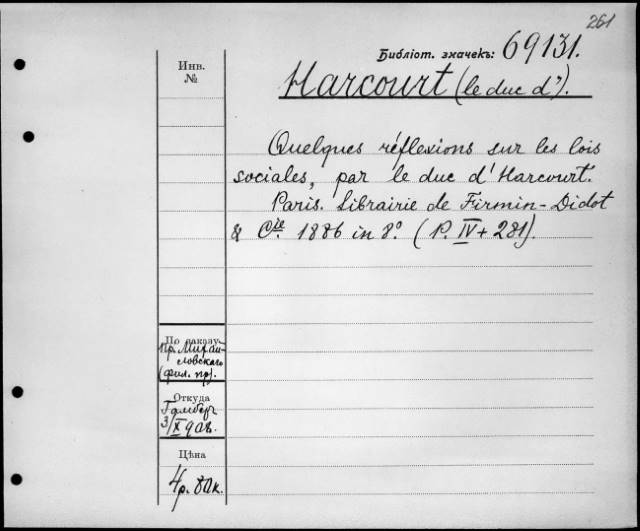 261
Библіот. значекъ: 69131.
Инв.
№
Harcourt (le duc d').
Quelques réflexions sur les lois
sociales, par le duc d'Harcourt.
Paris. Librairie de Firmin-Didot
& Cie. 1886 in 8º. (P. IV + 281).
По заказу
пр. Михай-
ловскаго
(фил. пр).
Откуда
3/X 908.
Цѣна
4р. 80к.